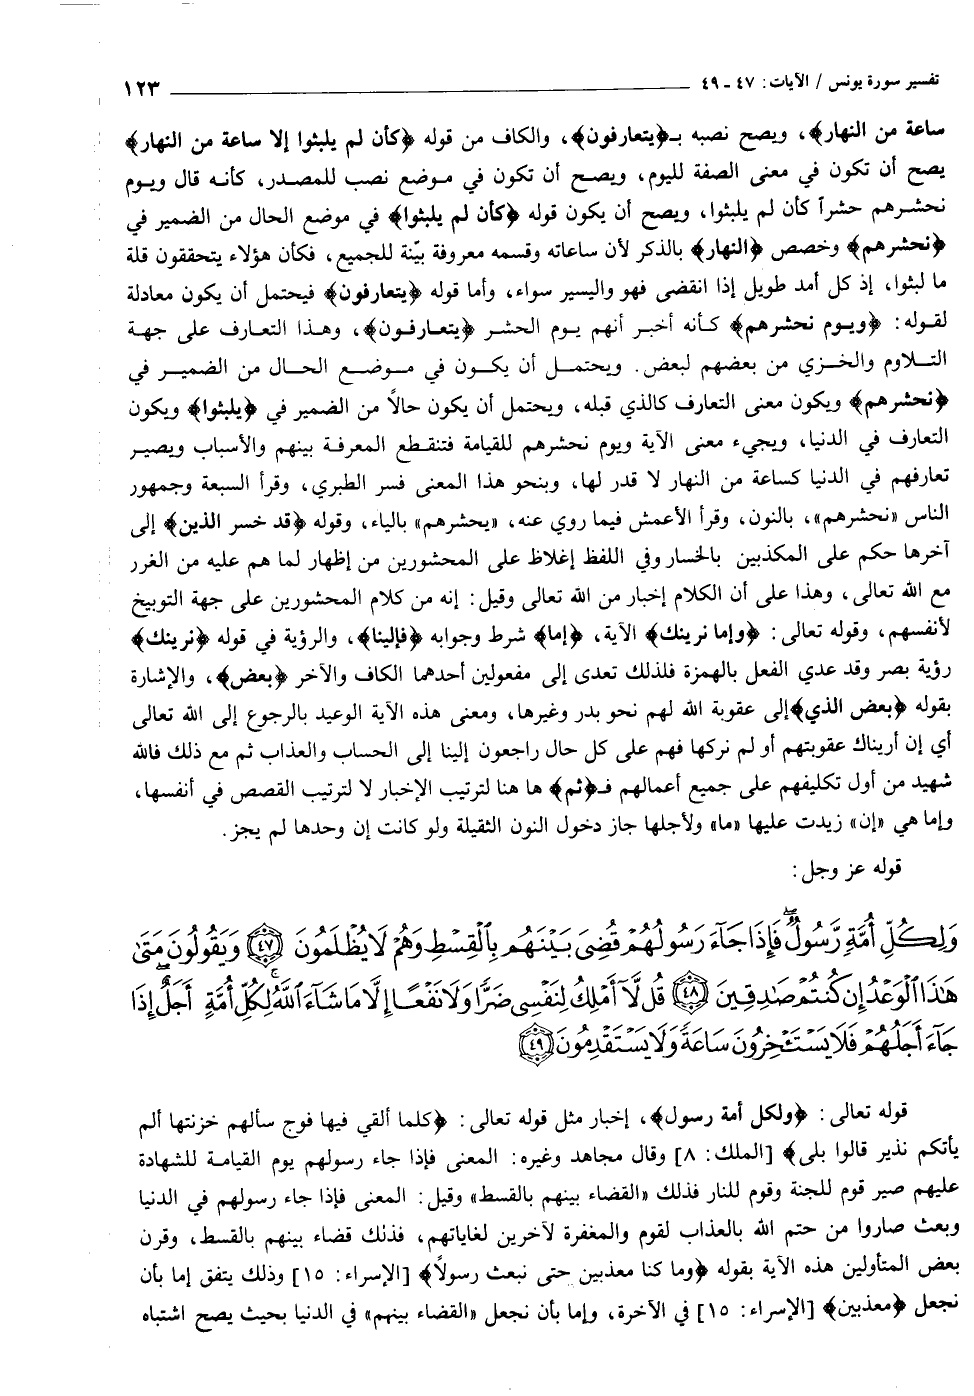 تفسير سورة يونس / الآيات: ٤٧ ـ ٤٩ ١٢٣
ساعة من النهار﴾، ويصح نصبه بـ﴿يتعارفون﴾، والكاف من قوله ﴿كأن لم يلبثوا إلا ساعة من النهار﴾
يصح أن تكون في معنى الصفة لليوم، ويصح أن تكون في موضع نصب للمصدر، كأنه قال ويوم
نحشرهم حشراً كأن لم يلبثوا، ويصح أن يكون قوله ﴿كأن لم يلبثوا﴾ في موضع الحال من الضمير في
﴿نحشرهم﴾ وخصص ﴿النهار﴾ بالذكر لأن ساعاته وقسمه معروفة بيّنة للجميع، فكأن هؤلاء يتحققون قلة
ما لبثوا، إذ كل أمد طويل إذا انقضى فهو واليسير سواء، وأما قوله ﴿يتعارفون﴾ فيحتمل أن يكون معادلة
لقوله: ﴿ويوم نحشرهم﴾ كأنه أخبر أنهم يوم الحشر ﴿يتعارفون﴾، وهذا التعارف على جهة
التلاوم والخزي من بعضهم لبعض. ويحتمل أن يكون في موضع الحال من الضمير في
﴿نحشرهم﴾ ويكون معنى التعارف كالذي قبله، ويحتمل أن يكون حالاً من الضمير في ﴿يلبثوا﴾ ويكون
التعارف في الدنيا، ويجيء معنى الآية ويوم نحشرهم للقيامة فتنقطع المعرفة بينهم والأسباب ويصير
تعارفهم في الدنيا كساعة من النهار لا قدر لها، وبنحو هذا المعنى فسر الطبري، وقرأ السبعة وجمهور
الناس «نحشرهم»، بالنون، وقرأ الأعمش فيما روي عنه، «يحشرهم» بالياء، وقوله ﴿قد خسر الذين﴾ إلى
آخرها حكم على المكذبين بالخسار وفي اللفظ إغلاظ على المحشورين من إظهار لما هم عليه من الغرر
مع الله تعالى، وهذا على أن الكلام إخبار من الله تعالى وقيل: إنه من كلام المحشورين على جهة التوبيخ
لأنفسهم، وقوله تعالى: ﴿وإما نرينك﴾ الآية، ﴿إما﴾ شرط وجوابه ﴿فإلينا﴾، والرؤية في قوله ﴿نرينك﴾
رؤية بصر وقد عدي الفعل بالهمزة فلذلك تعدى إلى مفعولين أحدهما الكاف والآخر ﴿بعض﴾، والإشارة
بقوله ﴿بعض الذي﴾إلى عقوبة الله لهم نحو بدر وغيرها، ومعنى هذه الآية الوعيد بالرجوع إلى الله تعالى
أي إن أريناك عقوبتهم أو لم نركها فهم على كل حال راجعون إلينا إلى الحساب والعذاب ثم مع ذلك فالله
شهيد من أول تكليفهم على جميع أعمالهم فـ﴿ثم﴾ ها هنا لترتيب الإخبار لا لترتيب القصص في أنفسها،
وإما هي «إن» زيدت عليها «ما» ولأجلها جاز دخول النون الثقيلة ولو كانت إن وحدها لم يجز.
قوله عز وجل:
وَلِكُلِّ أُمَّةٍ رَّسُولٌ ۖ فَإِذَا جَآءَ رَسُولُهُمْ قُضِىَ بَيْنَهُم بِٱلْقِسْطِ وَهُمْ لَا يُظْلَمُونَ ﴿٤٧﴾ وَيَقُولُونَ مَتَىٰ
هَـٰذَا ٱلْوَعْدُ إِن كُنتُمْ صَـٰدِقِينَ ﴿٤٨﴾ قُل لَّآ أَمْلِكُ لِنَفْسِى ضَرًّا وَلَا نَفْعًا إِلَّا مَا شَآءَ ٱللَّهُ ۗ لِكُلِّ أُمَّةٍ أَجَلٌ ۚ إِذَا
جَآءَ أَجَلُهُمْ فَلَا يَسْتَـْٔخِرُونَ سَاعَةً وَلَا يَسْتَقْدِمُونَ ﴿٤٩﴾
قوله تعالى: ﴿ولكل أمة رسول﴾، إخبار مثل قوله تعالى: ﴿كلما ألقي فيها فوج سألهم خزنتها ألم
يأتكم نذير قالوا بلى﴾ [الملك: ٨] وقال مجاهد وغيره: المعنى فإذا جاء رسولهم يوم القيامة للشهادة
عليهم صير قوم للجنة وقوم للنار فذلك «القضاء بينهم بالقسط» وقيل: المعنى فإذا جاء رسولهم في الدنيا
وبعث صاروا من حتم الله بالعذاب لقوم والمغفرة لآخرين لغاياتهم، فذلك قضاء بينهم بالقسط، وقرن
بعض المتأولين هذه الآية بقوله ﴿وما كنا معذبين حتى نبعث رسولاً﴾ [الإسراء: ١٥] وذلك يتفق إما بأن
نجعل ﴿معذبين﴾ [الإسراء: ١٥] في الآخرة، وإما بأن نجعل «القضاء بينهم» في الدنيا بحيث يصح اشتباه